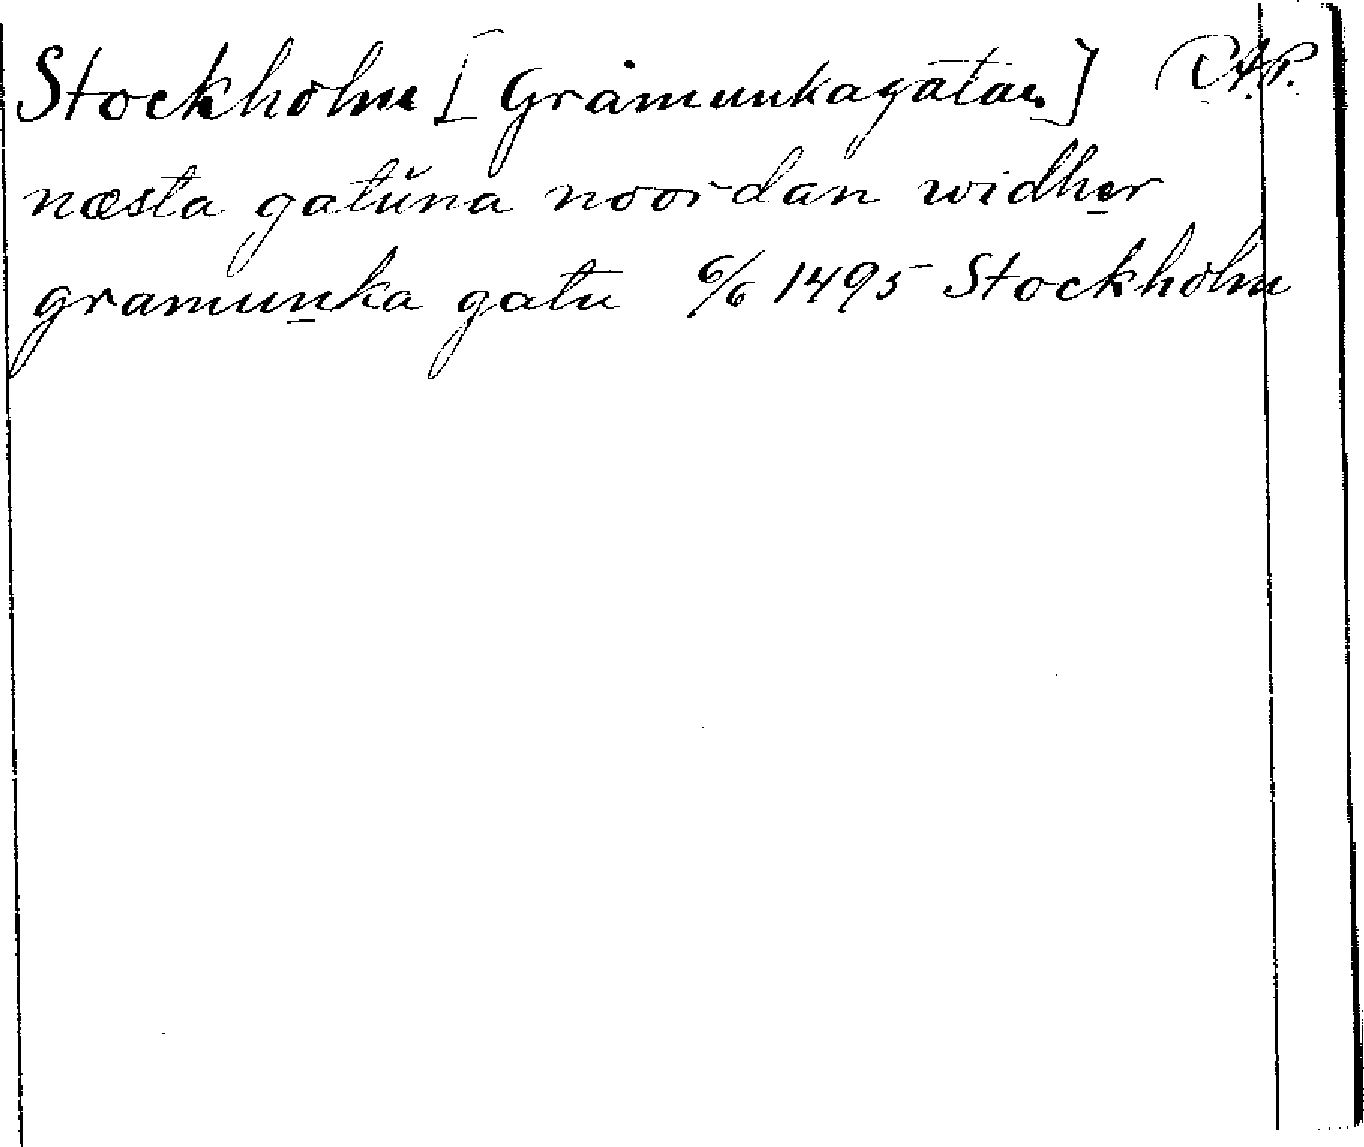 Stockholm [Gråmunkagatan] RAP.
næsta gatŭna noordan widher
gramunka gatu 6/6 1495 Stockholm